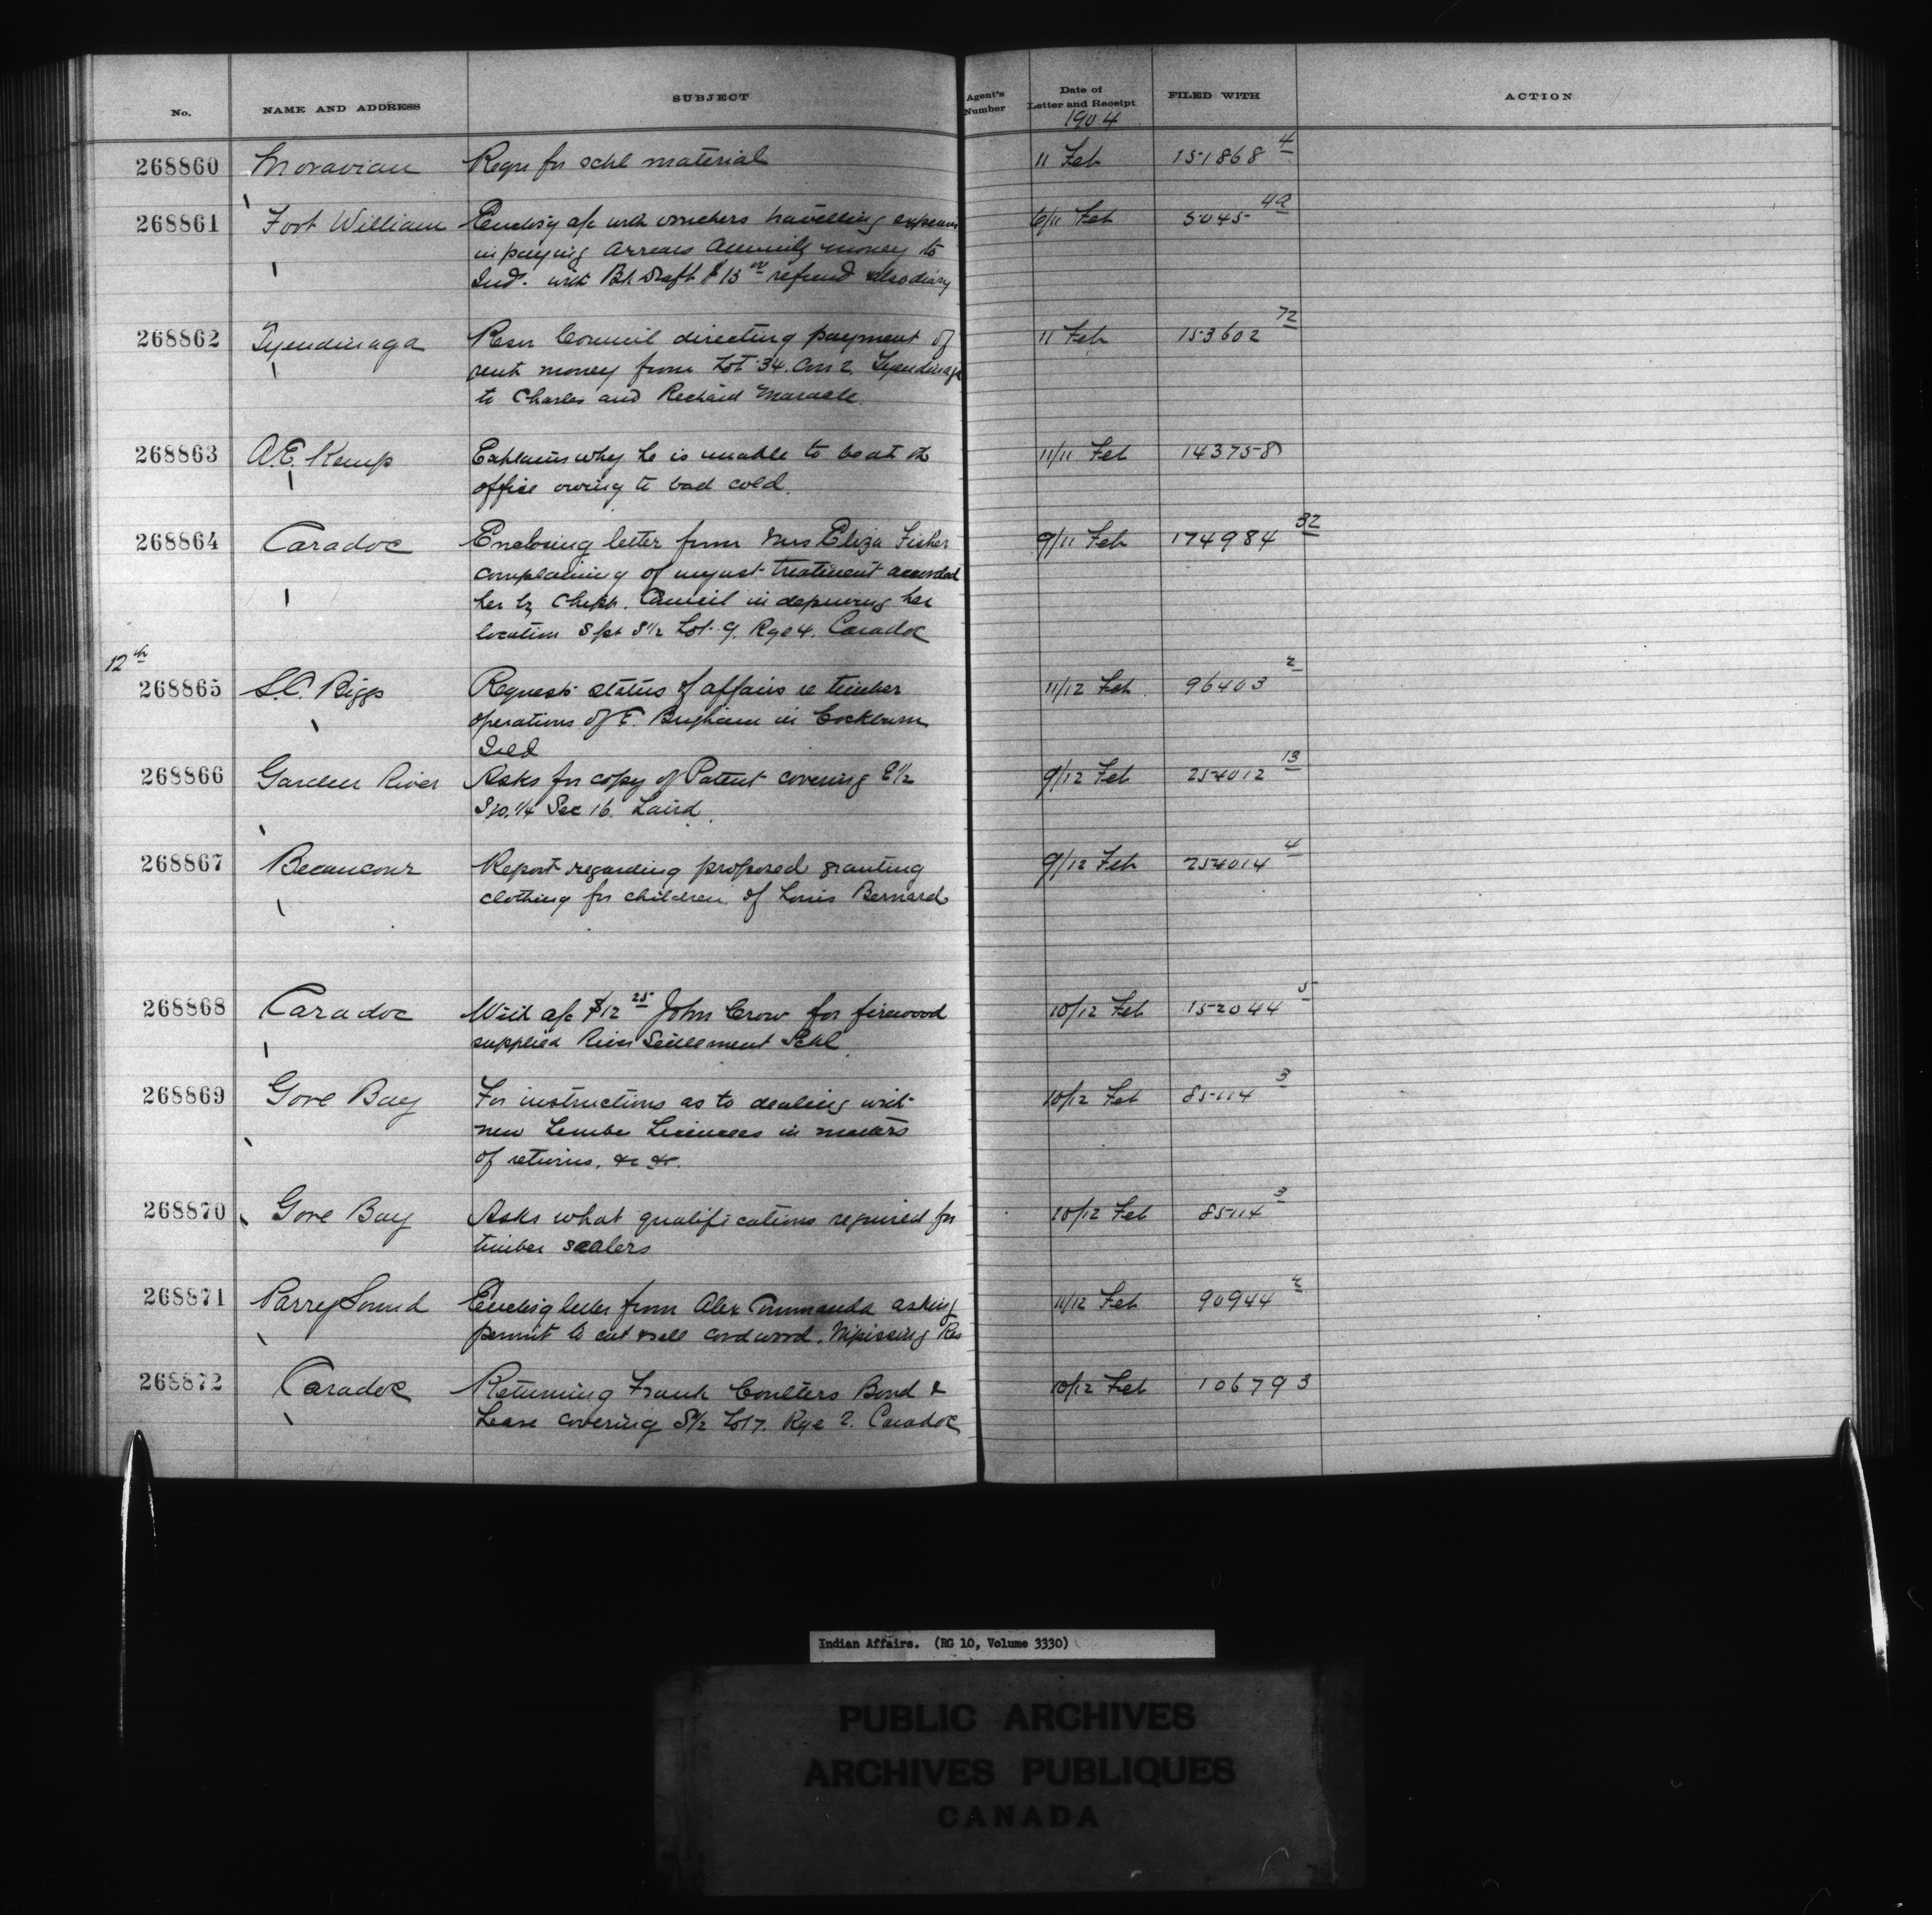 No. NAME AND ADDRESS SUBJECT Agent's Number Date of Letter and Receipt FILED WITH ACTION
1904
268860 Moravian Reqn for schl material 11 Feb 151868 4
268861 Fort William Enclosig a/c with vouchers travelling expenses 6/11 Feb 5045 4a
in paying arrears Annuity money to
Ind. with Bk Draft $13 00 refund also diary
268862 Tyendinaga Resn Council directing payment of 11 Feb 153602 72
rent money from Lot 34. Con 2. Tyendinaga
to Charles and Richard Maracle.
268863 A.E. Kemp Explains why he is unable to be at the 11/11 Feb 143758
office owing to bad cold.
268864 Caradoc Enclosing letter from Mrs Eliza Fisher 9/11 Feb 174984 32
complaining of unjust treatment accorded
her by Chipp. Council in depriving her
location S pt S½ Lot 9. Rge 4. Caradoc
12th
268865 S.C. Biggs Requests status of affairs re timber 11/12 Feb. 96403 2
operations of E. Brigham in Cockburn
Isld
268866 Garden River Asks for copy of Patent covering E½ 9/12 Feb 254012 13
S.W. ¼ Sec 16. Laird.
268867 Becancour Report regarding proposed granting 9/12 Feb 254014 4
clothing for children of Louis Bernard
268868 Caradoc With a/c $12 25 John Crow for firewood 10/12 Feb 152044 5
supplied River Settlement Schl
268869 Gore Bay For instructions as to dealing with 10/12 Feb 85114 3
new Limber Licencees in matters
of returns, &c &c.
268870 Gore Bay Asks what qualifications required for 10/12 Feb 85114 3
timber scalers
268871 Parry Sound Enclosig letter from Alex Commanda asking 11/12 Feb 90944
permit to cut & sell cordwood. Nipissing Res
268872 Caradoc Returning Frank Coulters Bond & 10/12 Feb 106793
Lease covering S½ Lot 7. Rge 2. Caradoc
Indian Affairs. (RG 10, Volume 3330)
PUBLIC ARCHIVES
ARCHIVES PUBLIQUES
CANADA